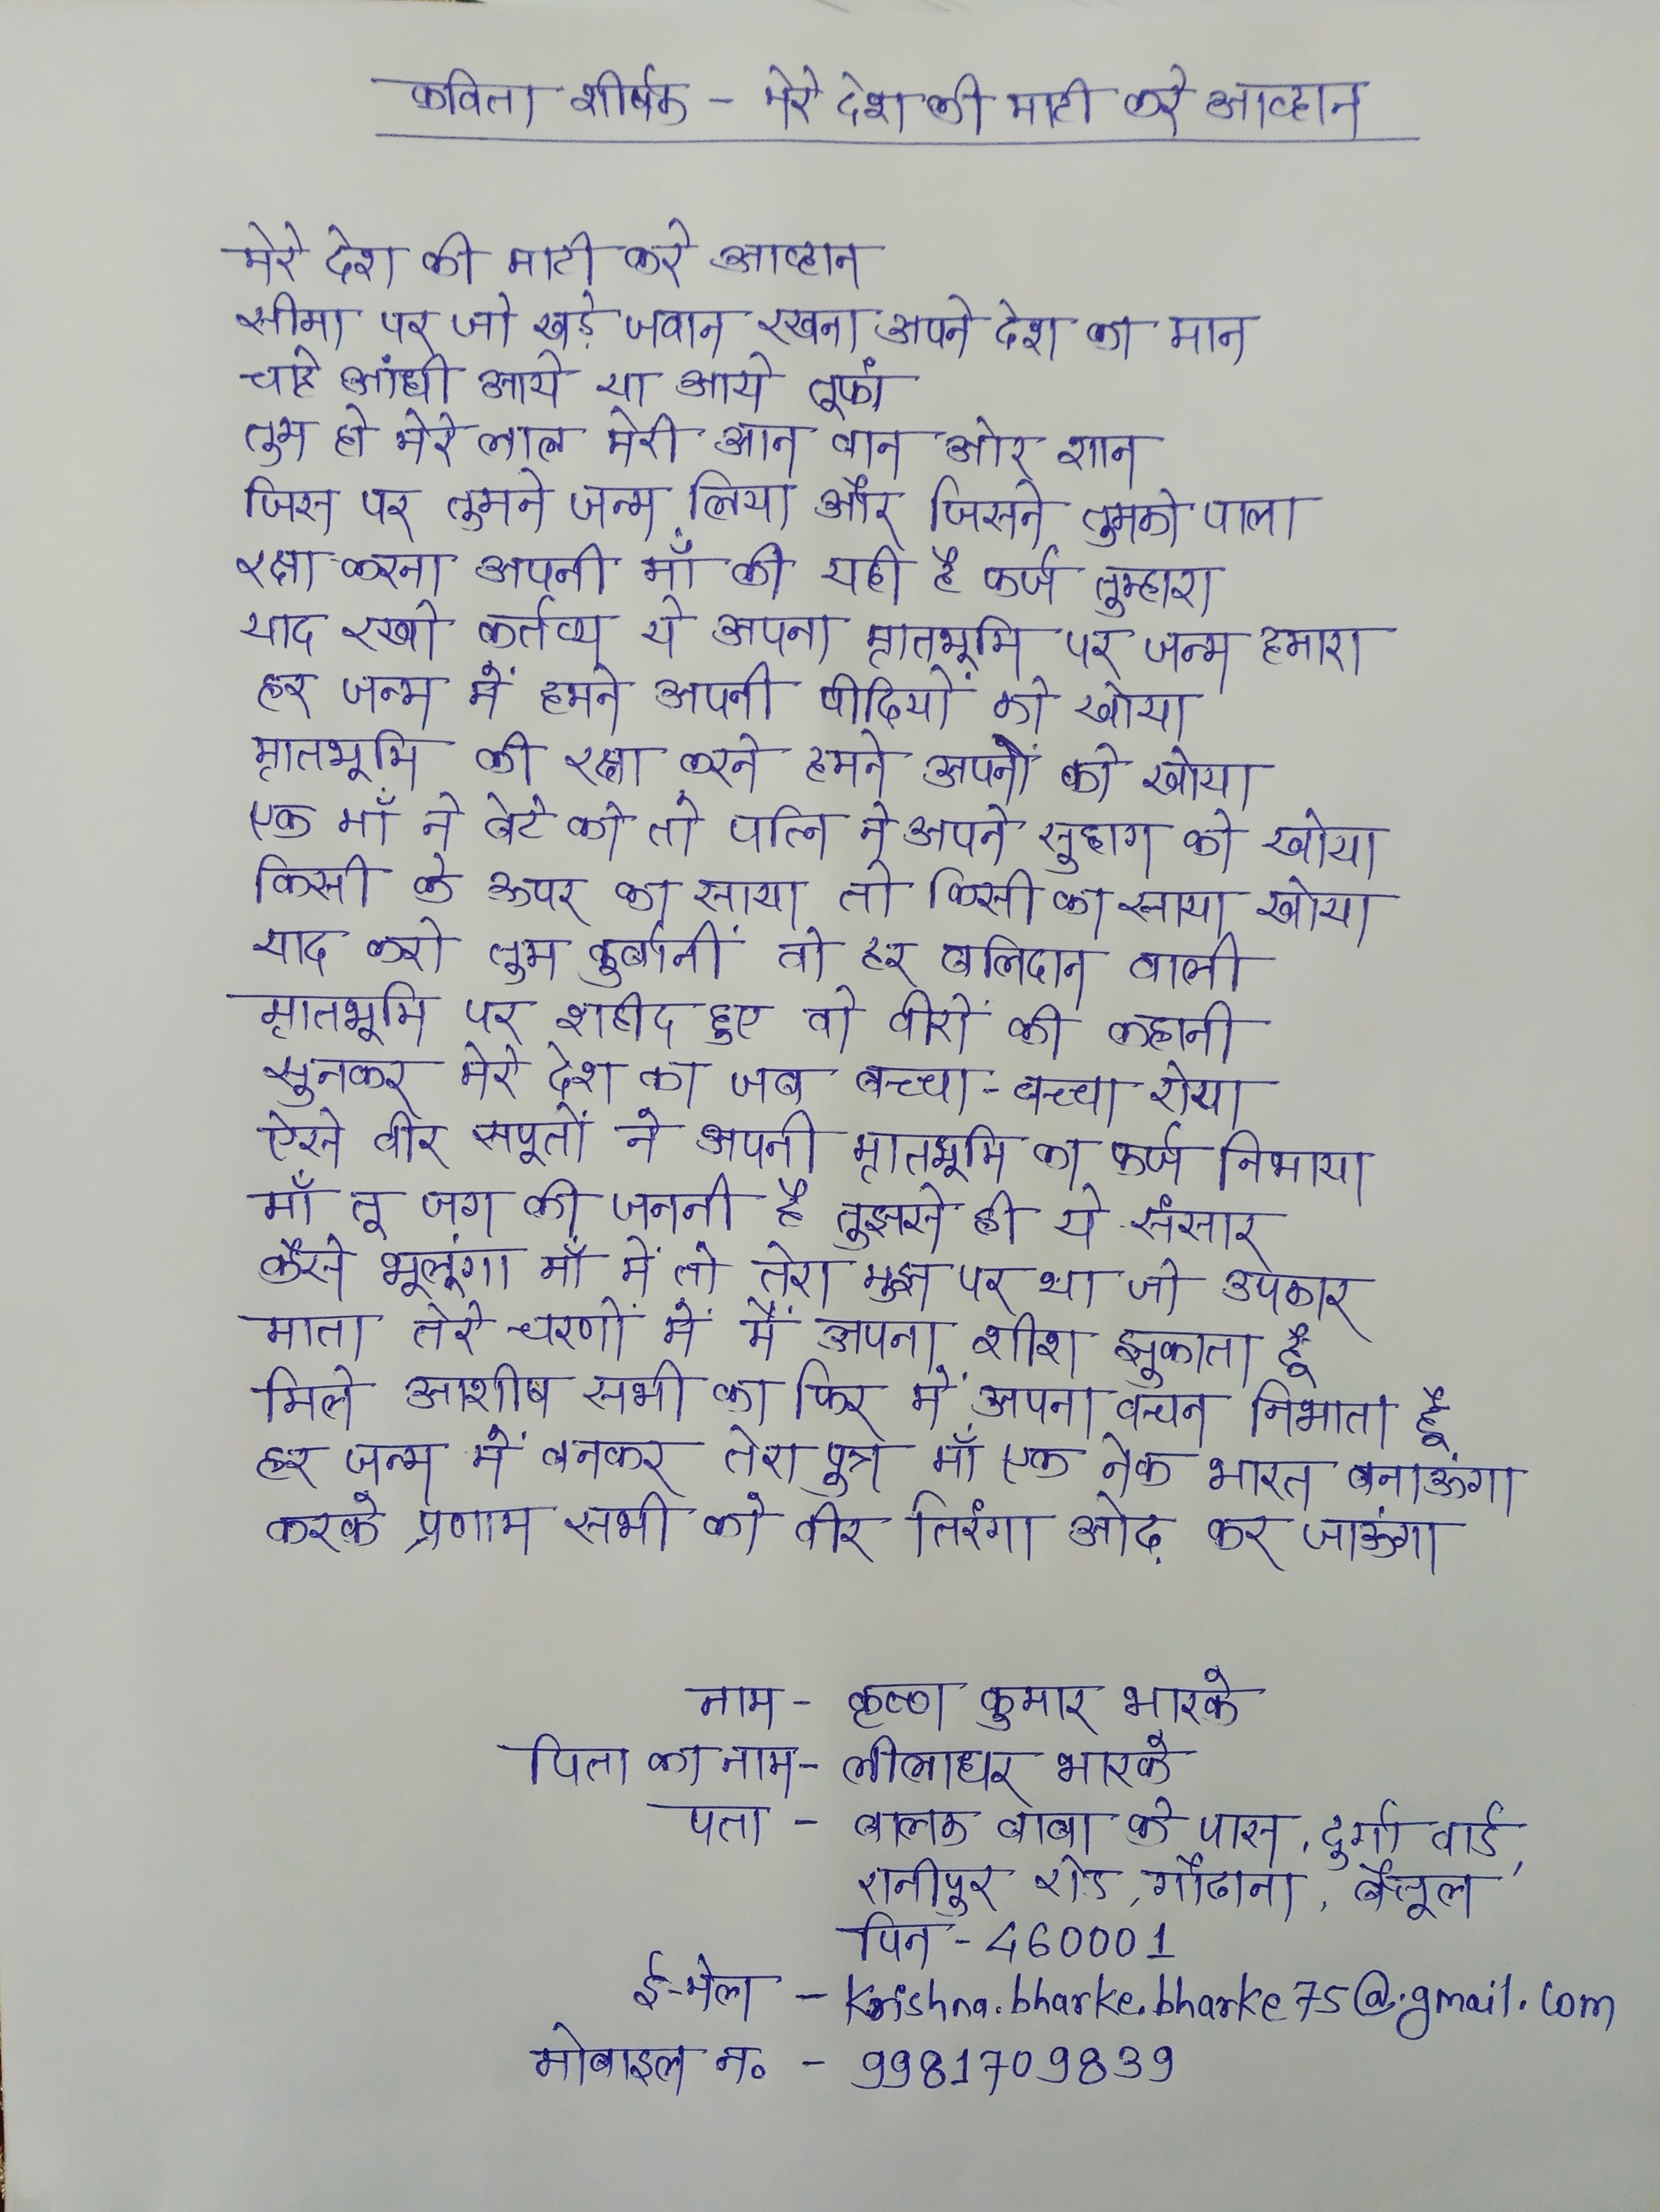 कविता शीर्षक - मेरे देश की माटी करे आव्हान
मेरे देश की माटी करे आव्हान
सीमा पर जो खड़े जवान रखना अपने देश का मान
चाहे आंधी आये या आये तूफां
तुम हो मेरे लाल मेरी आन वान ओर शान
जिस पर तुमने जन्म लिया और जिसने तुमको पाला
रक्षा करना अपनी माँ की यही है फर्ज तुम्हारा
याद रखो कर्तव्य ये अपना मातृभूमि पर जन्म हमारा
हर जन्म में हमने अपनी पीढियों को खोया
मातृभूमि की रक्षा करने हमने अपनों को खोया
एक माँ ने बेटे को तो पत्नि ने अपने सुहाग को खोया
किसी के ऊपर का साया तो किसी का साया खोया
याद करो तुम कुर्बानीं वो हर बलिदान वाली
मातृभूमि पर शहीद हुए वो वीरों की कहानी
सुनकर मेरे देश का जब बच्चा-बच्चा रोया
ऐसे वीर सपूतों ने अपनी मातृभूमि का फर्ज निभाया
माँ तू जग की जननी है तुझसे ही ये संसार
कैसे भूलूंगा माँ में तो तेरा मुझ पर था जो उपकार
माता तेरे चरणों में मैं अपना शीश झुकाता हूँ
मिले आशीष सभी का फिर में अपना वचन निभाता हूँ
हर जन्म में बनकर तेरा पुत्र माँ एक नेक भारत बनाऊंगा
करके प्रणाम सभी को वीर तिरंगा ओढ़ कर जाऊंगा
नाम - कृष्ण कुमार भारके
पिता का नाम - लीलाधर भारके
पता - बालक बाबा के पास, दुर्गा वार्ड,
रानीपुर रोड, गौढाना, बैतूल
पिन - 460001
ई-मेल - krishna.bharke.bharke75@.gmail.com
मोबाइल न. - 9981709839